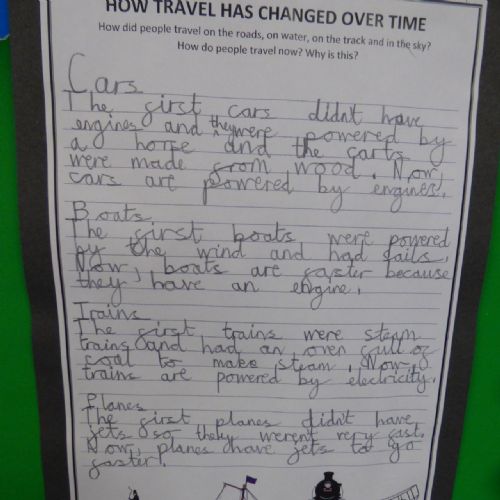 HOW TRAVEL HAS CHANGED OVER TIME
How did people travel on the roads, on water, on the track and in the sky?
How do people travel now? Why is this?
Cars
The first cars didn't have
engines and they were powered by
a horse and the carts
were made from wood. Now,
cars are powered by engines.
Boats
The first boats were powered
by the wind and had sails.
Now, boats are faster because
they have an engine.
Trains
The first trains were steam
trains and had an oven full of
coal to make steam. Now,
trains are powered by electricity.
Planes
The first planes didn't have
jets so they weren't very fast.
Now planes have jets to go
faster.